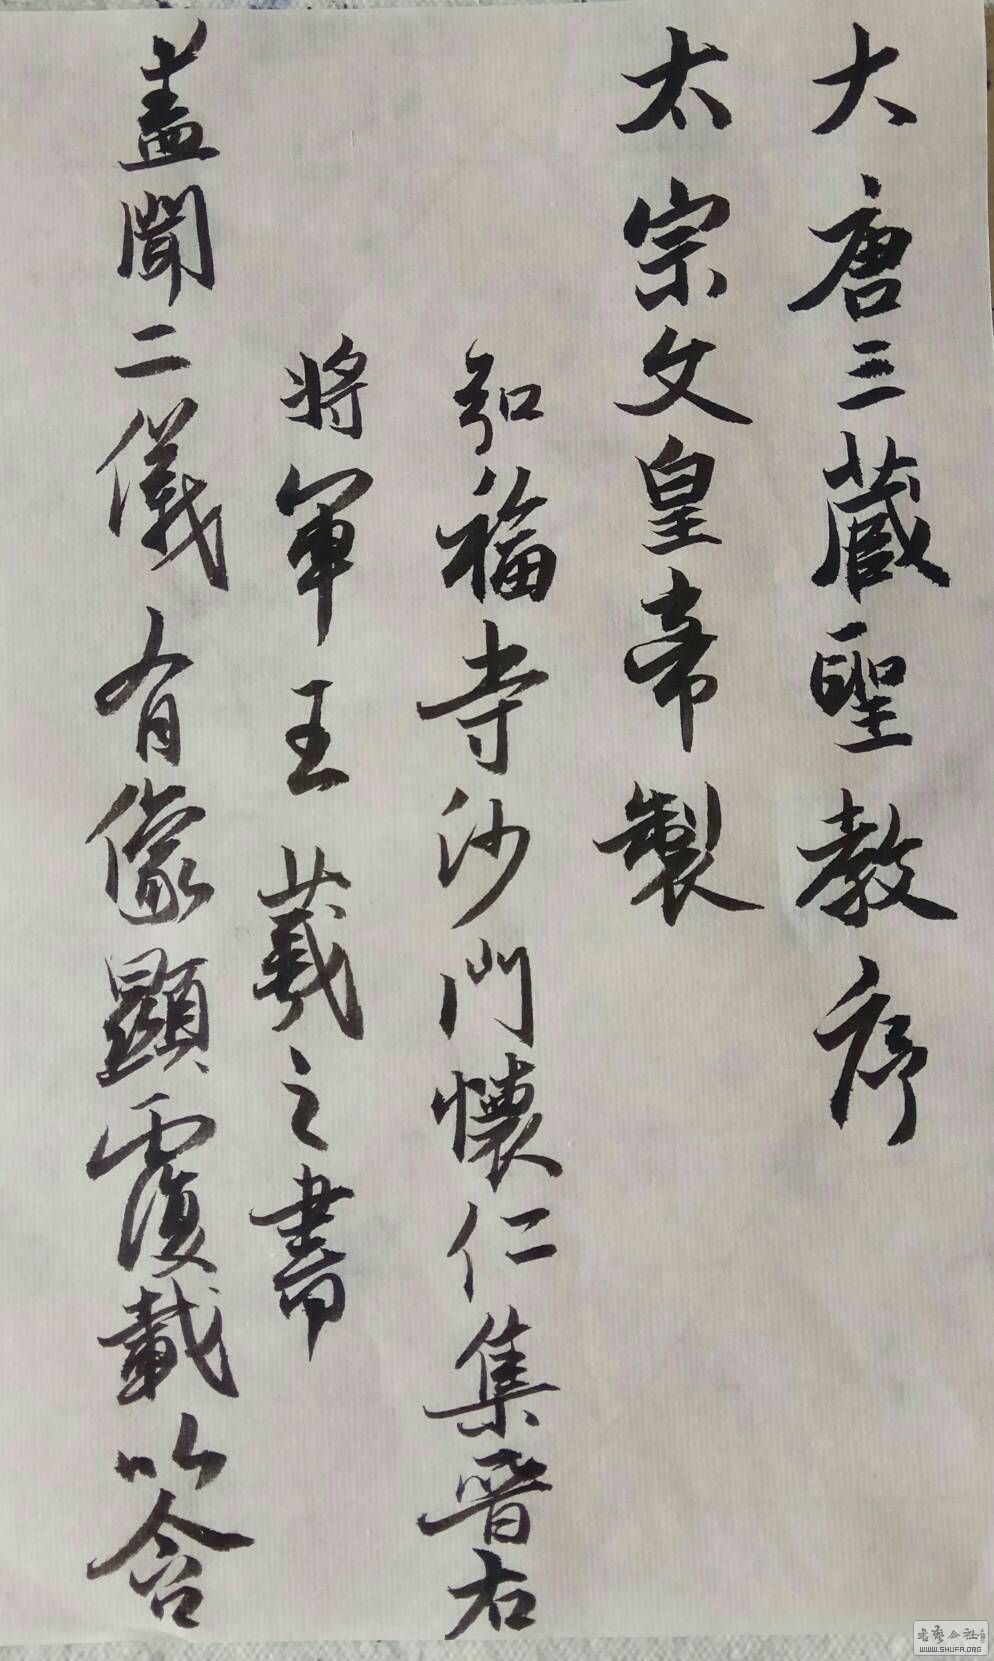 大唐三藏聖教序
太宗文皇帝製
弘福寺沙門懷仁集晉右
將軍王羲之書
蓋聞二儀有像顯覆載以含
書藝公社
WWW.SHUFA.ORG